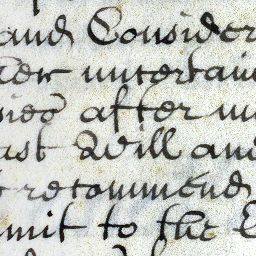 and Consider
der uncertain
sies after m
ast Will and
recommend
mit to the E